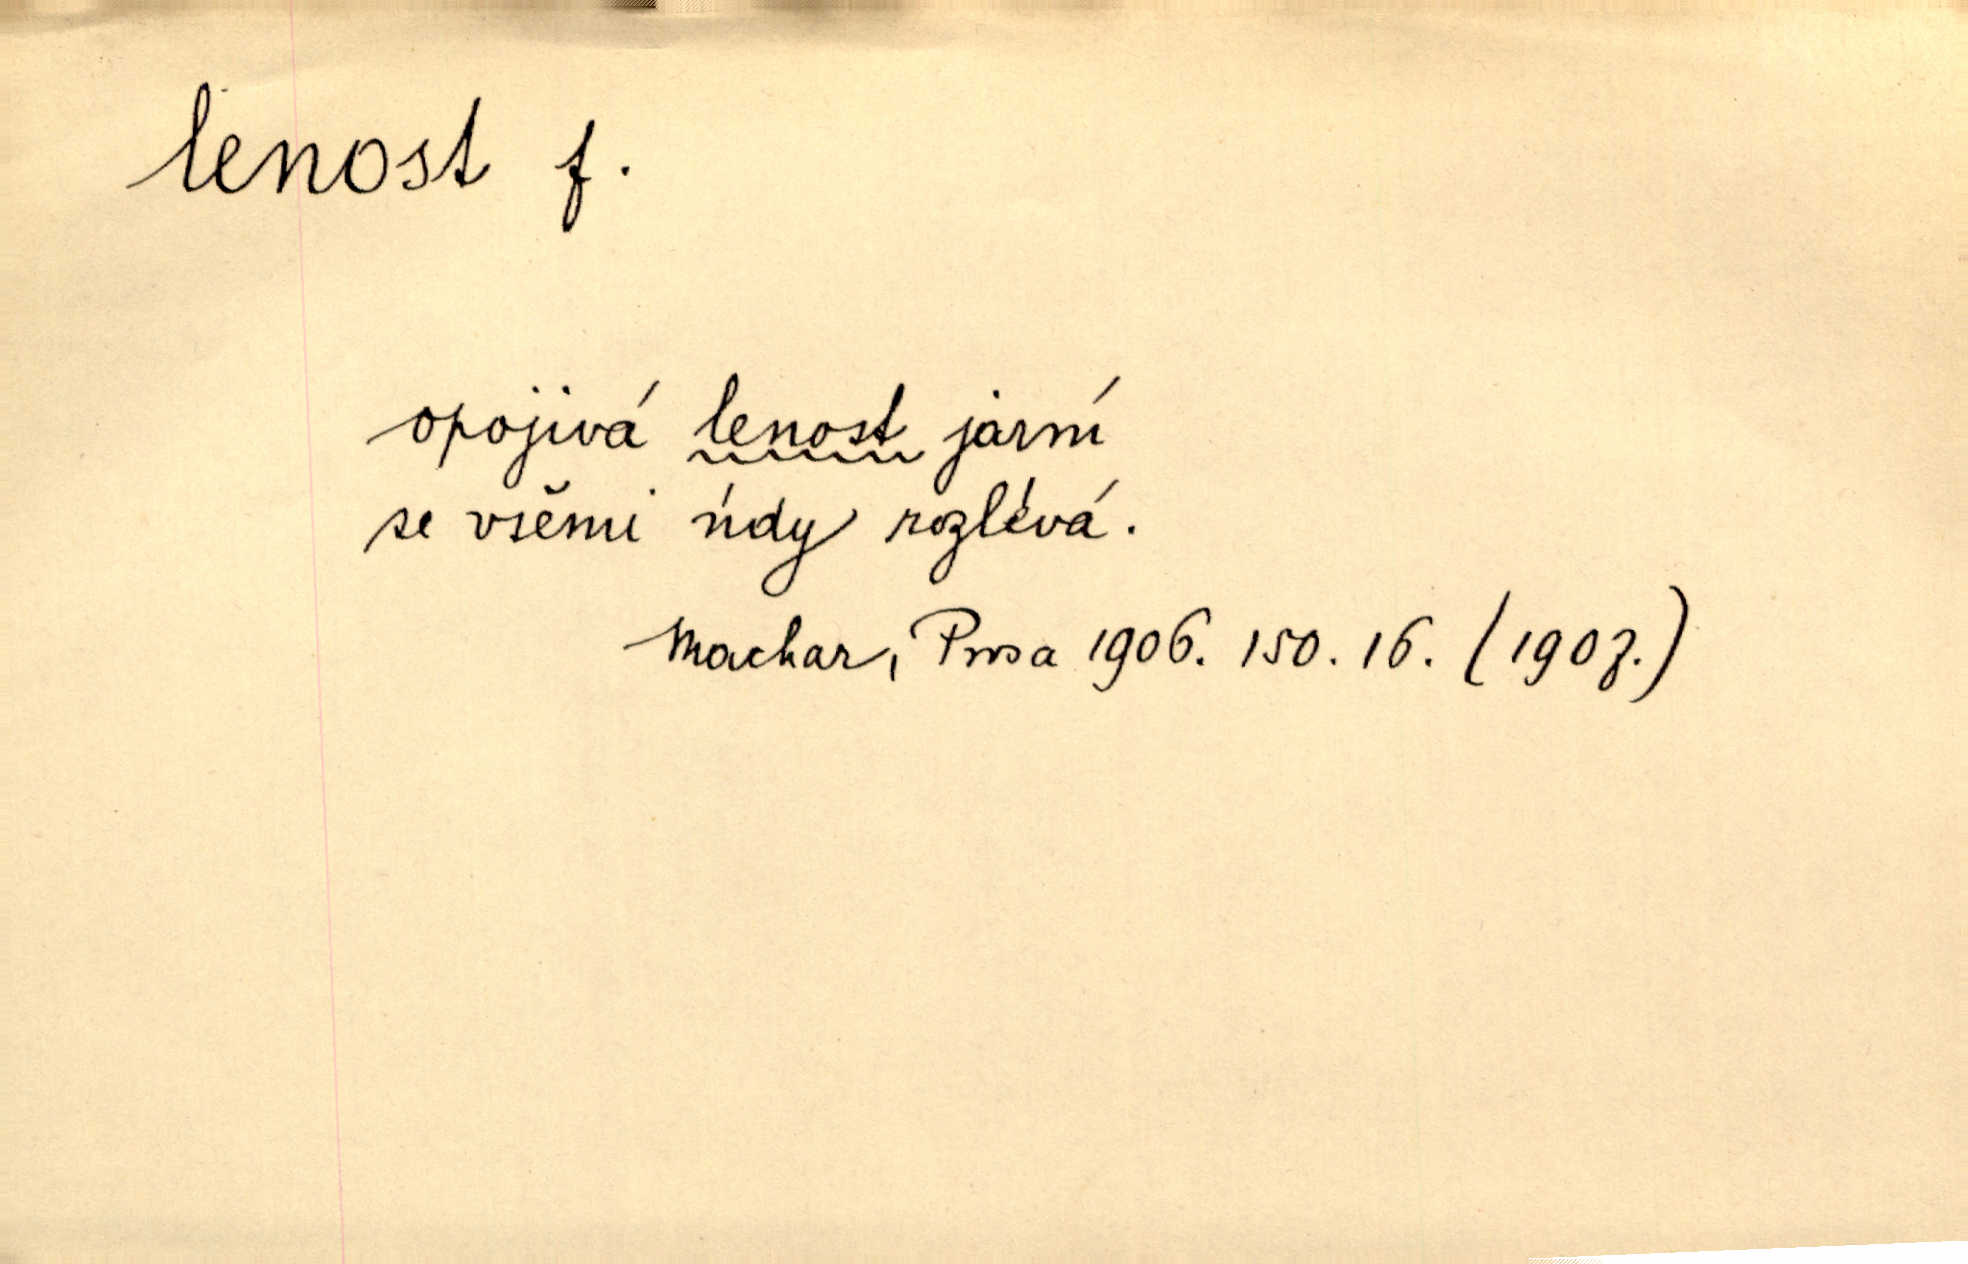 lenost f.
opojivá lenost jarní
se všěmi údy rozlévá.
Machar, Prosa 1906. 150. 16. (1903.)